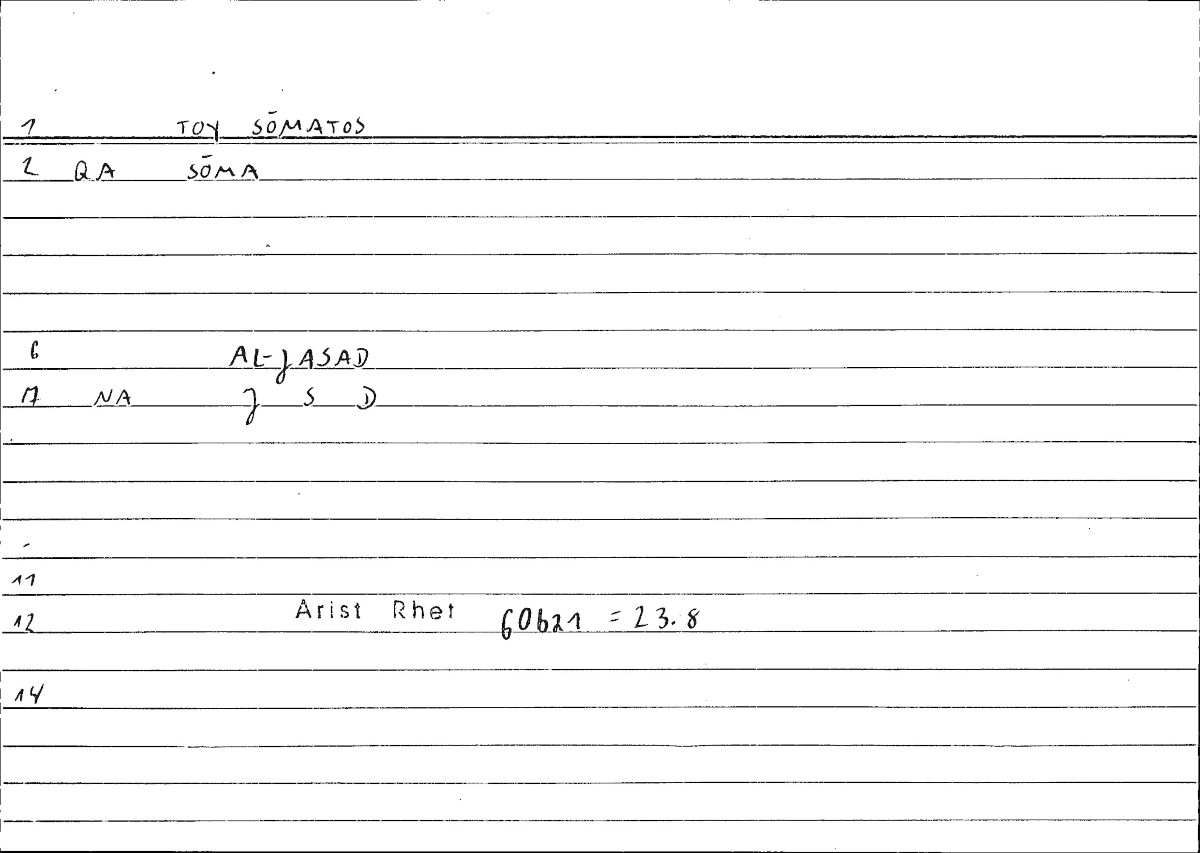 1 TOY SŌMATOS
2 QA SŌMA
6 AL-JASAD
17 NA J S D
11
12 Arist Rhet 60b21 = 23.8
14